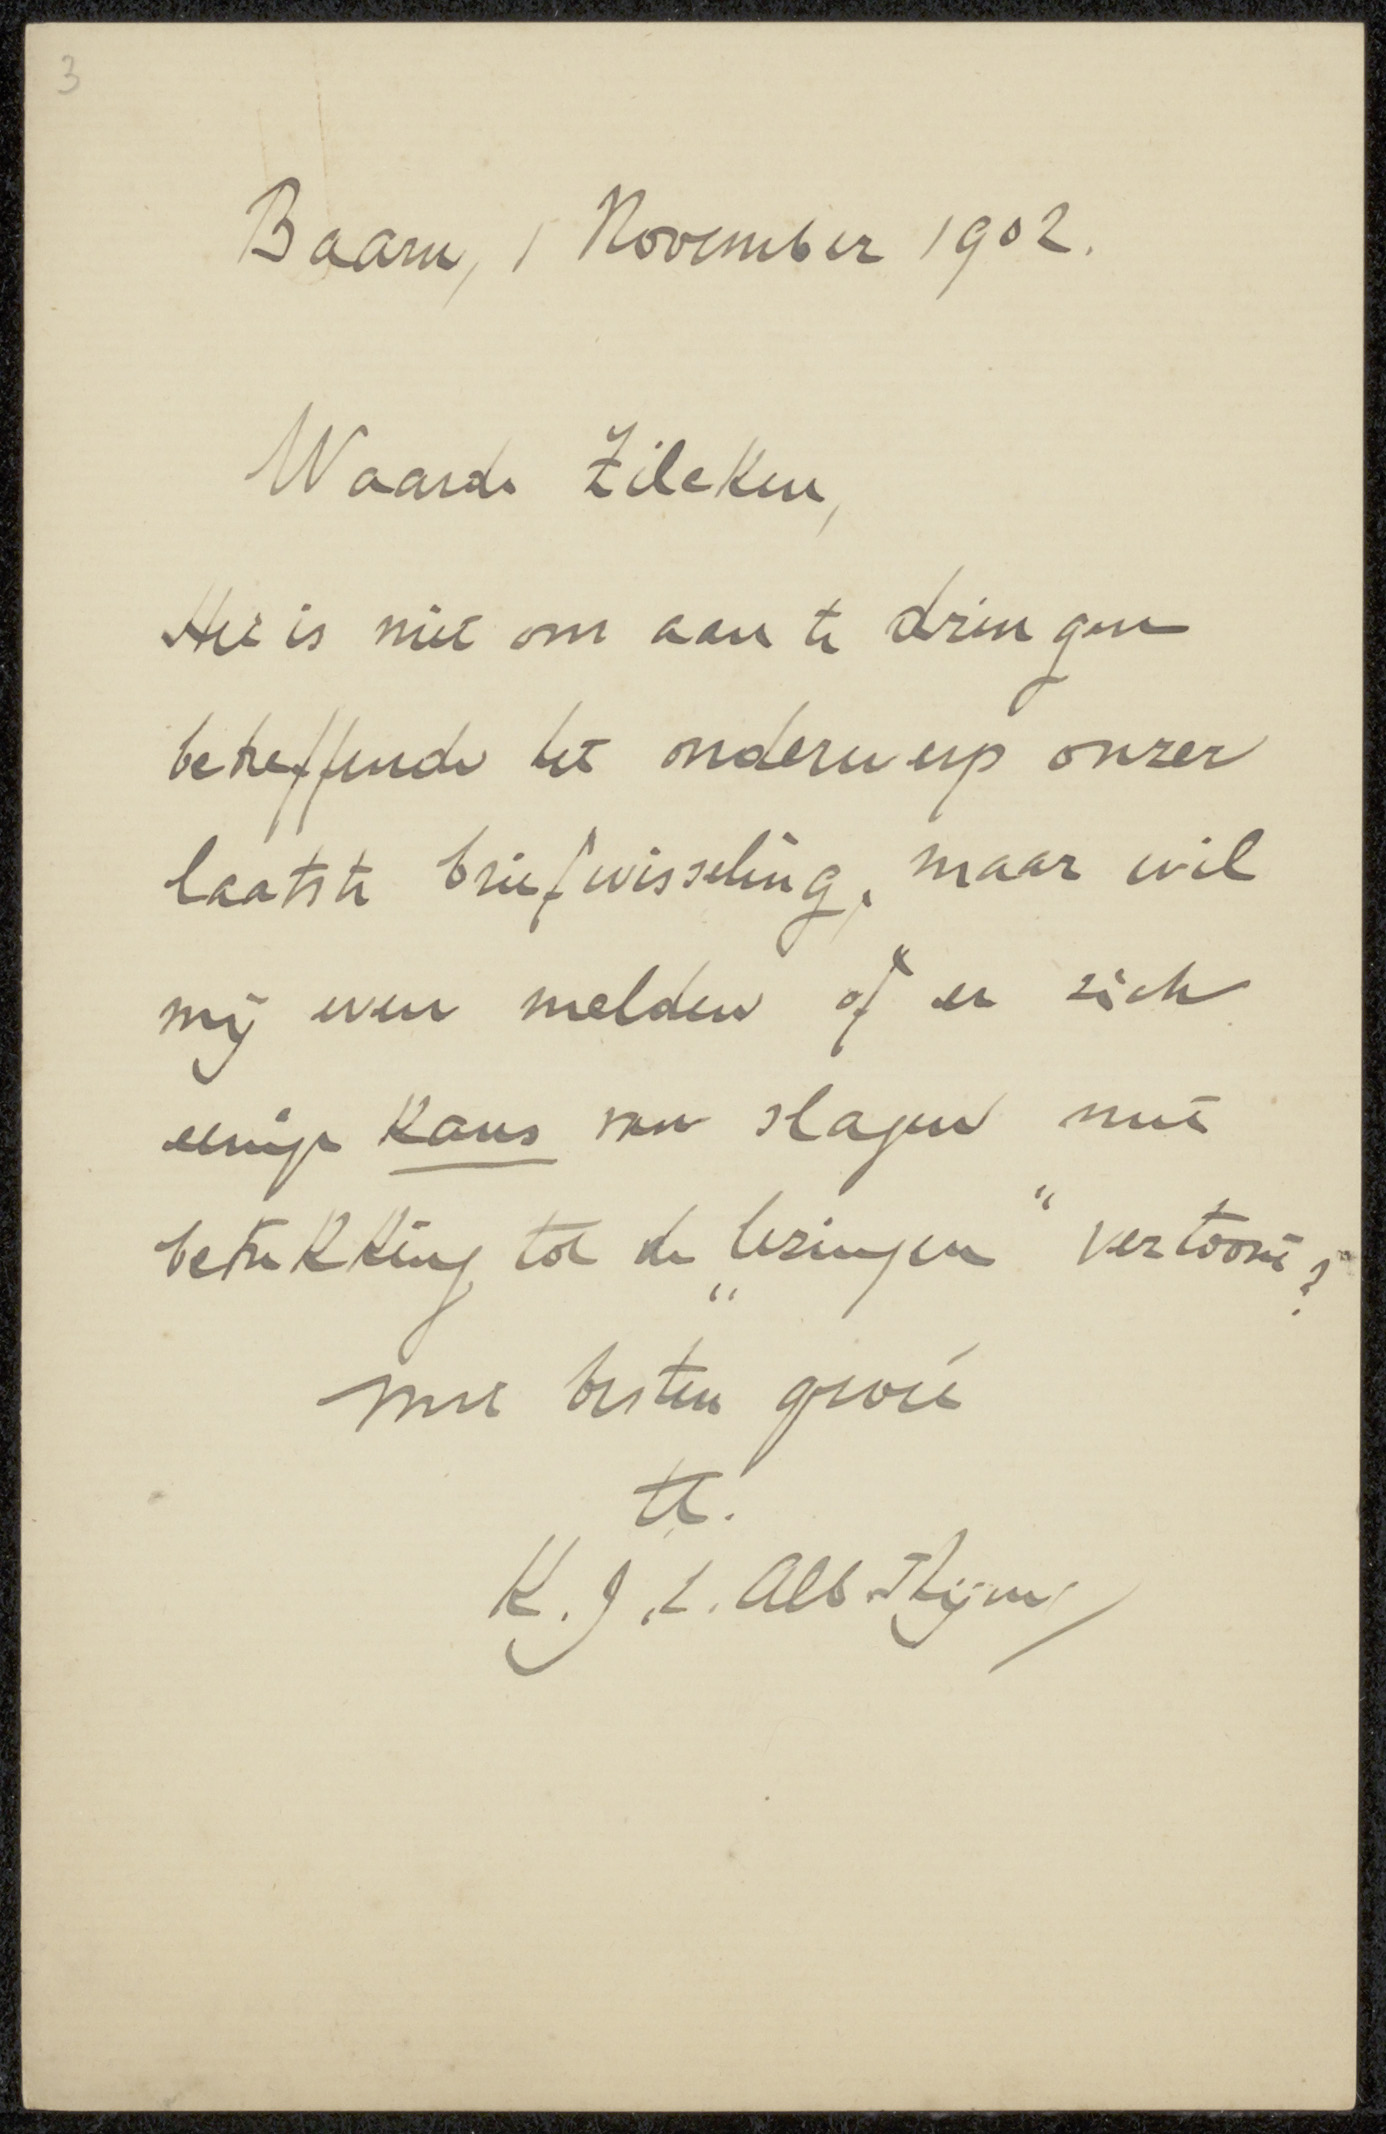 3
Baarn, 1 November 1902.
Waarde Zilcken,
Het is niet om aan te dringen
betreffende het onderwerp onzer
laatste briefwisseling, maar wil
mij even melden of er zich
eenige Kans van slagen met
betrekking tot de „lezingen" vertoont?
Met besten groet
tt.
K. J. L. Alb. Thijm